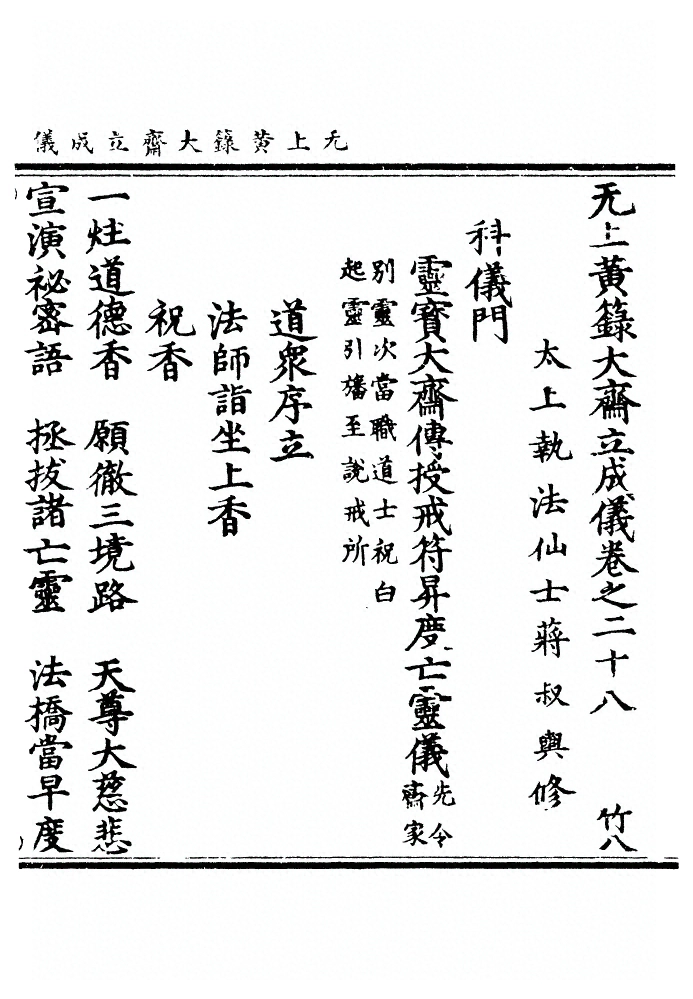 无上黃籙大齋立成儀
无上黃籙大齋立成儀卷之二十八 竹八
太上執法仙士蔣叔輿修
科儀門
靈寶大齋傳授戒符昇度亡靈儀 先令
齋家
別靈次當職道士祝白
起靈引旛至說戒所
道衆序立
法師詣坐上香
祝香
一炷道德香 願徹三境路 天尊大慈悲
宣演祕密語 拯拔諸亡靈 法橋當早度